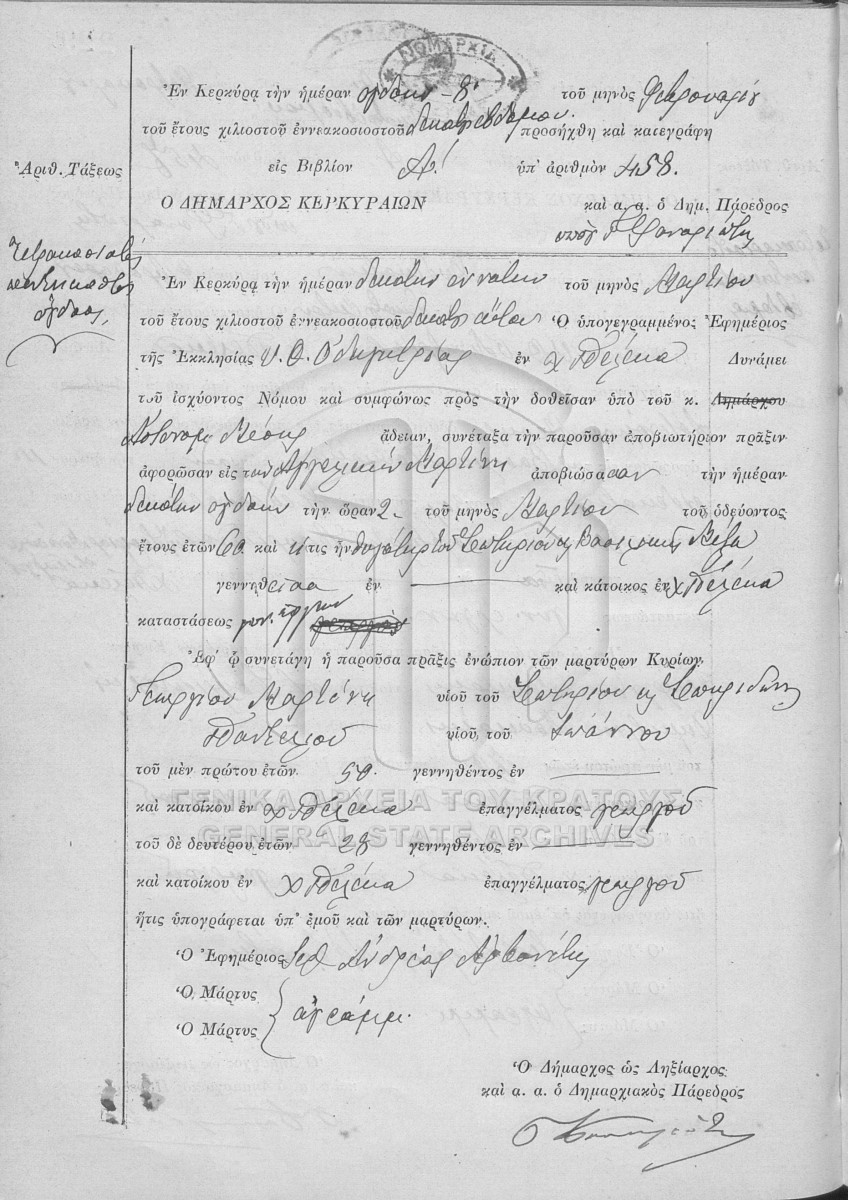 ΝΟΜΑΡΧΙΑ
Ἐν Κερκύρᾳ τὴν ἡμέραν ὀγδόην - 8' τοῦ μηνὸς Φεβρουαρίου
τοῦ ἔτους χιλιοστοῦ ἐννεακοσιοστοῦ δεκάτου ἑβδόμου προσήχθη καὶ κατεγράφη
Ἀριθ. Τάξεως εἰς Βιβλίον Α' ὑπ' ἀριθμὸν 458.
Ο ΔΗΜΑΡΧΟΣ ΚΕΡΚΥΡΑΙΩΝ καὶ α. α. ὁ Δημ. Πάρεδρος
Τετρακοσιοστὸς
πεντηκοστὸς
ὄγδοος
Ἐν Κερκύρᾳ τὴν ἡμέραν δεκάτην ἐννάτην τοῦ μηνὸς Μαρτίου
τοῦ ἔτους χιλιοστοῦ ἐννεακοσιοστοῦ Ὁ ὑπογεγραμμένος Ἐφημέριος
τῆς Ἐκκλησίας Υ. Θ. Ὁδηγητρίας ἐν χ Πέλεκα Δυνάμει
τοῦ ἰσχύοντος Νόμου καὶ συμφώνως πρὸς τὴν δοθεῖσαν ὑπὸ τοῦ κ. Δημάρχου
ἄδειαν, συνέταξα τὴν παροῦσαν ἀποβιωτήριον πρᾶξιν
ἀφορῶσαν εἰς τὴν Ἀγγελικὴν Μαρτίνη ἀποβιώσασαν τὴν ἡμέραν
δεκάτην ὀγδόην τὴν ὥραν 2 - τοῦ μηνὸς Μαρτίου τοῦ ὁδεύοντος
ἔτους ἐτῶν 60 καὶ ἥτις ἦν θυγάτηρ τοῦ Σωτηρίου κ Βασιλικῆς
γεννηθεῖσα ἐν — καὶ κάτοικος ἐν χ Πέλεκα
καταστάσεως
Ἐφ' ᾧ συνετάγη ἡ παροῦσα πρᾶξις ἐνώπιον τῶν μαρτύρων Κυρίων
Γεωργίου Μαρτίνη υἱοῦ τοῦ Σωτηρίου κ Σπυρίδων
Παντελιοῦ υἱοῦ τοῦ Ἰωάννου
τοῦ μὲν πρώτου ἐτῶν 50. γεννηθέντος ἐν —
καὶ κατοίκου ἐν χ Πέλεκα ἐπαγγέλματος γεωργοῦ
ΓΕΝΙΚΑ ΑΡΧΕΙΑ ΤΟΥ ΚΡΑΤΟΥΣ
GENERAL STATE ARCHIVES
τοῦ δὲ δευτέρου ἐτῶν 28 γεννηθέντος ἐν —
καὶ κατοίκου ἐν χ Πέλεκα ἐπαγγέλματος γεωργοῦ
ἥτις ὑπογράφεται ὑπ' ἐμοῦ καὶ τῶν μαρτύρων.
Ὁ Ἐφημέριος Ἱερ. Ἀνδρέας
Ὁ Μάρτυς
Ὁ Μάρτυς ἀγράμμ.
Ὁ Δήμαρχος ὡς Ληξίαρχος
καὶ α. α. ὁ Δημαρχιακὸς Πάρεδρος